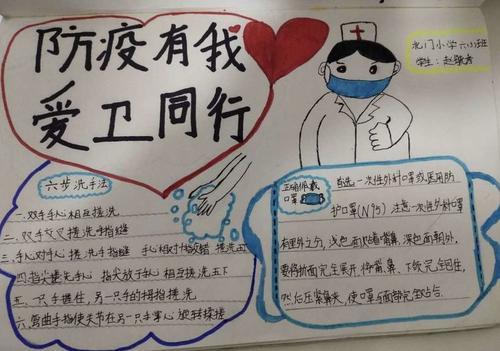 防疫有我
爱卫同行
北门小学六(3)班
学生:赵
六步洗手法
一.双手手心相互搓洗
二.双手交叉搓洗手指缝
三.手心对手心搓洗手指缝 手心相对十指交错 搓洗五
四.指尖搓洗手心 指尖放于手心相互搓洗五下
五.一只手握住另一只手的拇指搓洗
六.弯曲手指使关节在另一只手掌心旋转揉搓
正确佩戴
口罩
首选一次性外科口罩或医用防
护口罩(N95)注意一次性外科口罩
有里外之分,浅色面贴着鼻,深色面朝外,
要将折面完全展开,将嘴鼻、下颌完全包住,
然后压紧鼻夹,使口罩与面部完全贴合.